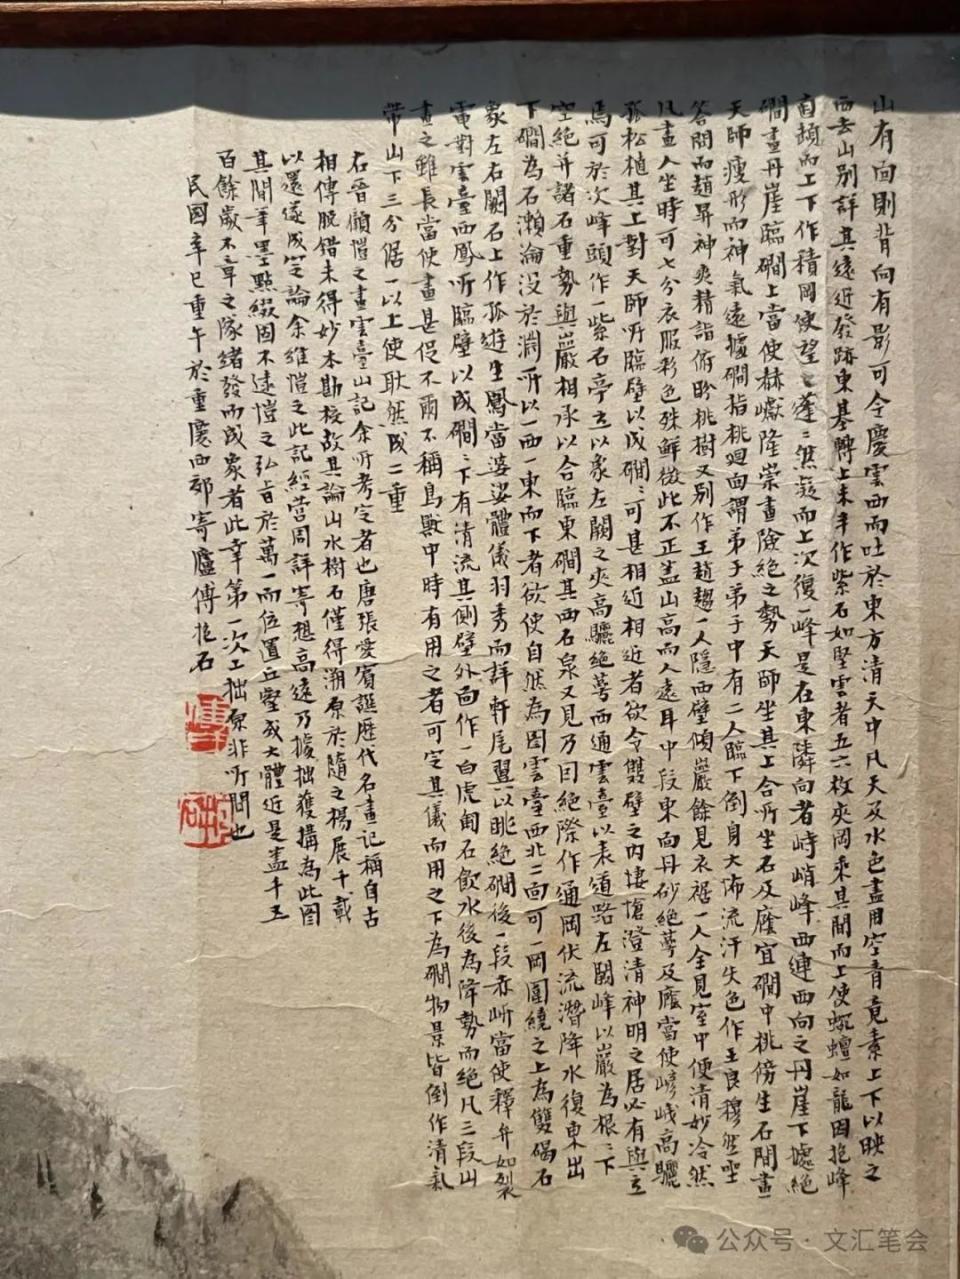 山有面則背向有影可令慶雲西而吐於東方清天中凡天及水色盡用空青竟素上下以映之
西去山別詳其遠近發跡東基轉上未半作紫石如堅雲者五六枚夾岡乘其間而上使蜿蟺如龍因抱峰
直頓而上下作積岡使望之蓬蓬然凝而上次復一峰是石東隣向者峙峭峰西連西向之丹崖下據絕
磵畫丹崖臨磵上當使赫巘隆崇畫險絕之勢天師坐其上合所坐石及廕宜磵中桃傍生石間畫
天師瘦形而神氣遠據磵指桃迴面謂弟子弟子中有二人臨下倒身大怖流汗失色作王良穆然坐
答問而趙昇神爽精詣俯盼桃樹又別作王趙趨一人隱西壁傾巖餘見衣裾一人全見室中使清妙冷然
凡畫人坐時可七分衣服彩色殊鮮微此不正蓋山高而人遠耳中段東面丹砂絕萼及廕當使嵃嵥高驪
孤松植其上對天師所臨壁以成磵磵可甚相近相近者欲令雙壁之內悽愴澄清神明之居必有與立
焉可於次峰頭作一紫石亭立以象左闕之夾高驪絕萼西通雲臺以表道路左闕峰以巖為根根下
空絕并諸石重勢與巖相承以合臨東磵其西石泉又見乃因絕際作通岡伏流潛降水復東出
下磵為石瀨淪沒於淵所以一西一東而下者欲使自然為圖雲臺西北二面可一岡圍繞之上為雙碣石
象左右闕石上作孤遊生鳳當婆娑體儀羽秀而詳軒尾翼以眺絕磵後一段赤岓當使釋弁如裂
電對雲臺西鳳所臨壁以成磵磵下有清流其側壁外面作一白虎匍石飲水後為降勢而絕凡三段山
畫之雖長當使畫甚促不爾不稱鳥獸中時有用之者可定其儀而用之下為磵物景皆倒作清氣
帶山下三分倨一以上使耿然成二重
右晉顧愷之畫雲臺山記余所考定者也唐張愛賓譔歷代名畫記稱自古
相傳脫錯未得妙本勘校故其論山水樹石僅得溯原於隨之楊展千載
以還遂成定論余維愷之此記經營周詳寄想高遠乃據拙獲搆為此圖
其間筆墨點綴固不遠愷之弘旨於萬一而位置丘壑或大體近是蓋千五
百餘歲不章之隊緒發而成象者此幸第一次工拙原非所問也
民國辛巳重午於重慶西郊寄廬傅抱石
公众号·文汇笔会